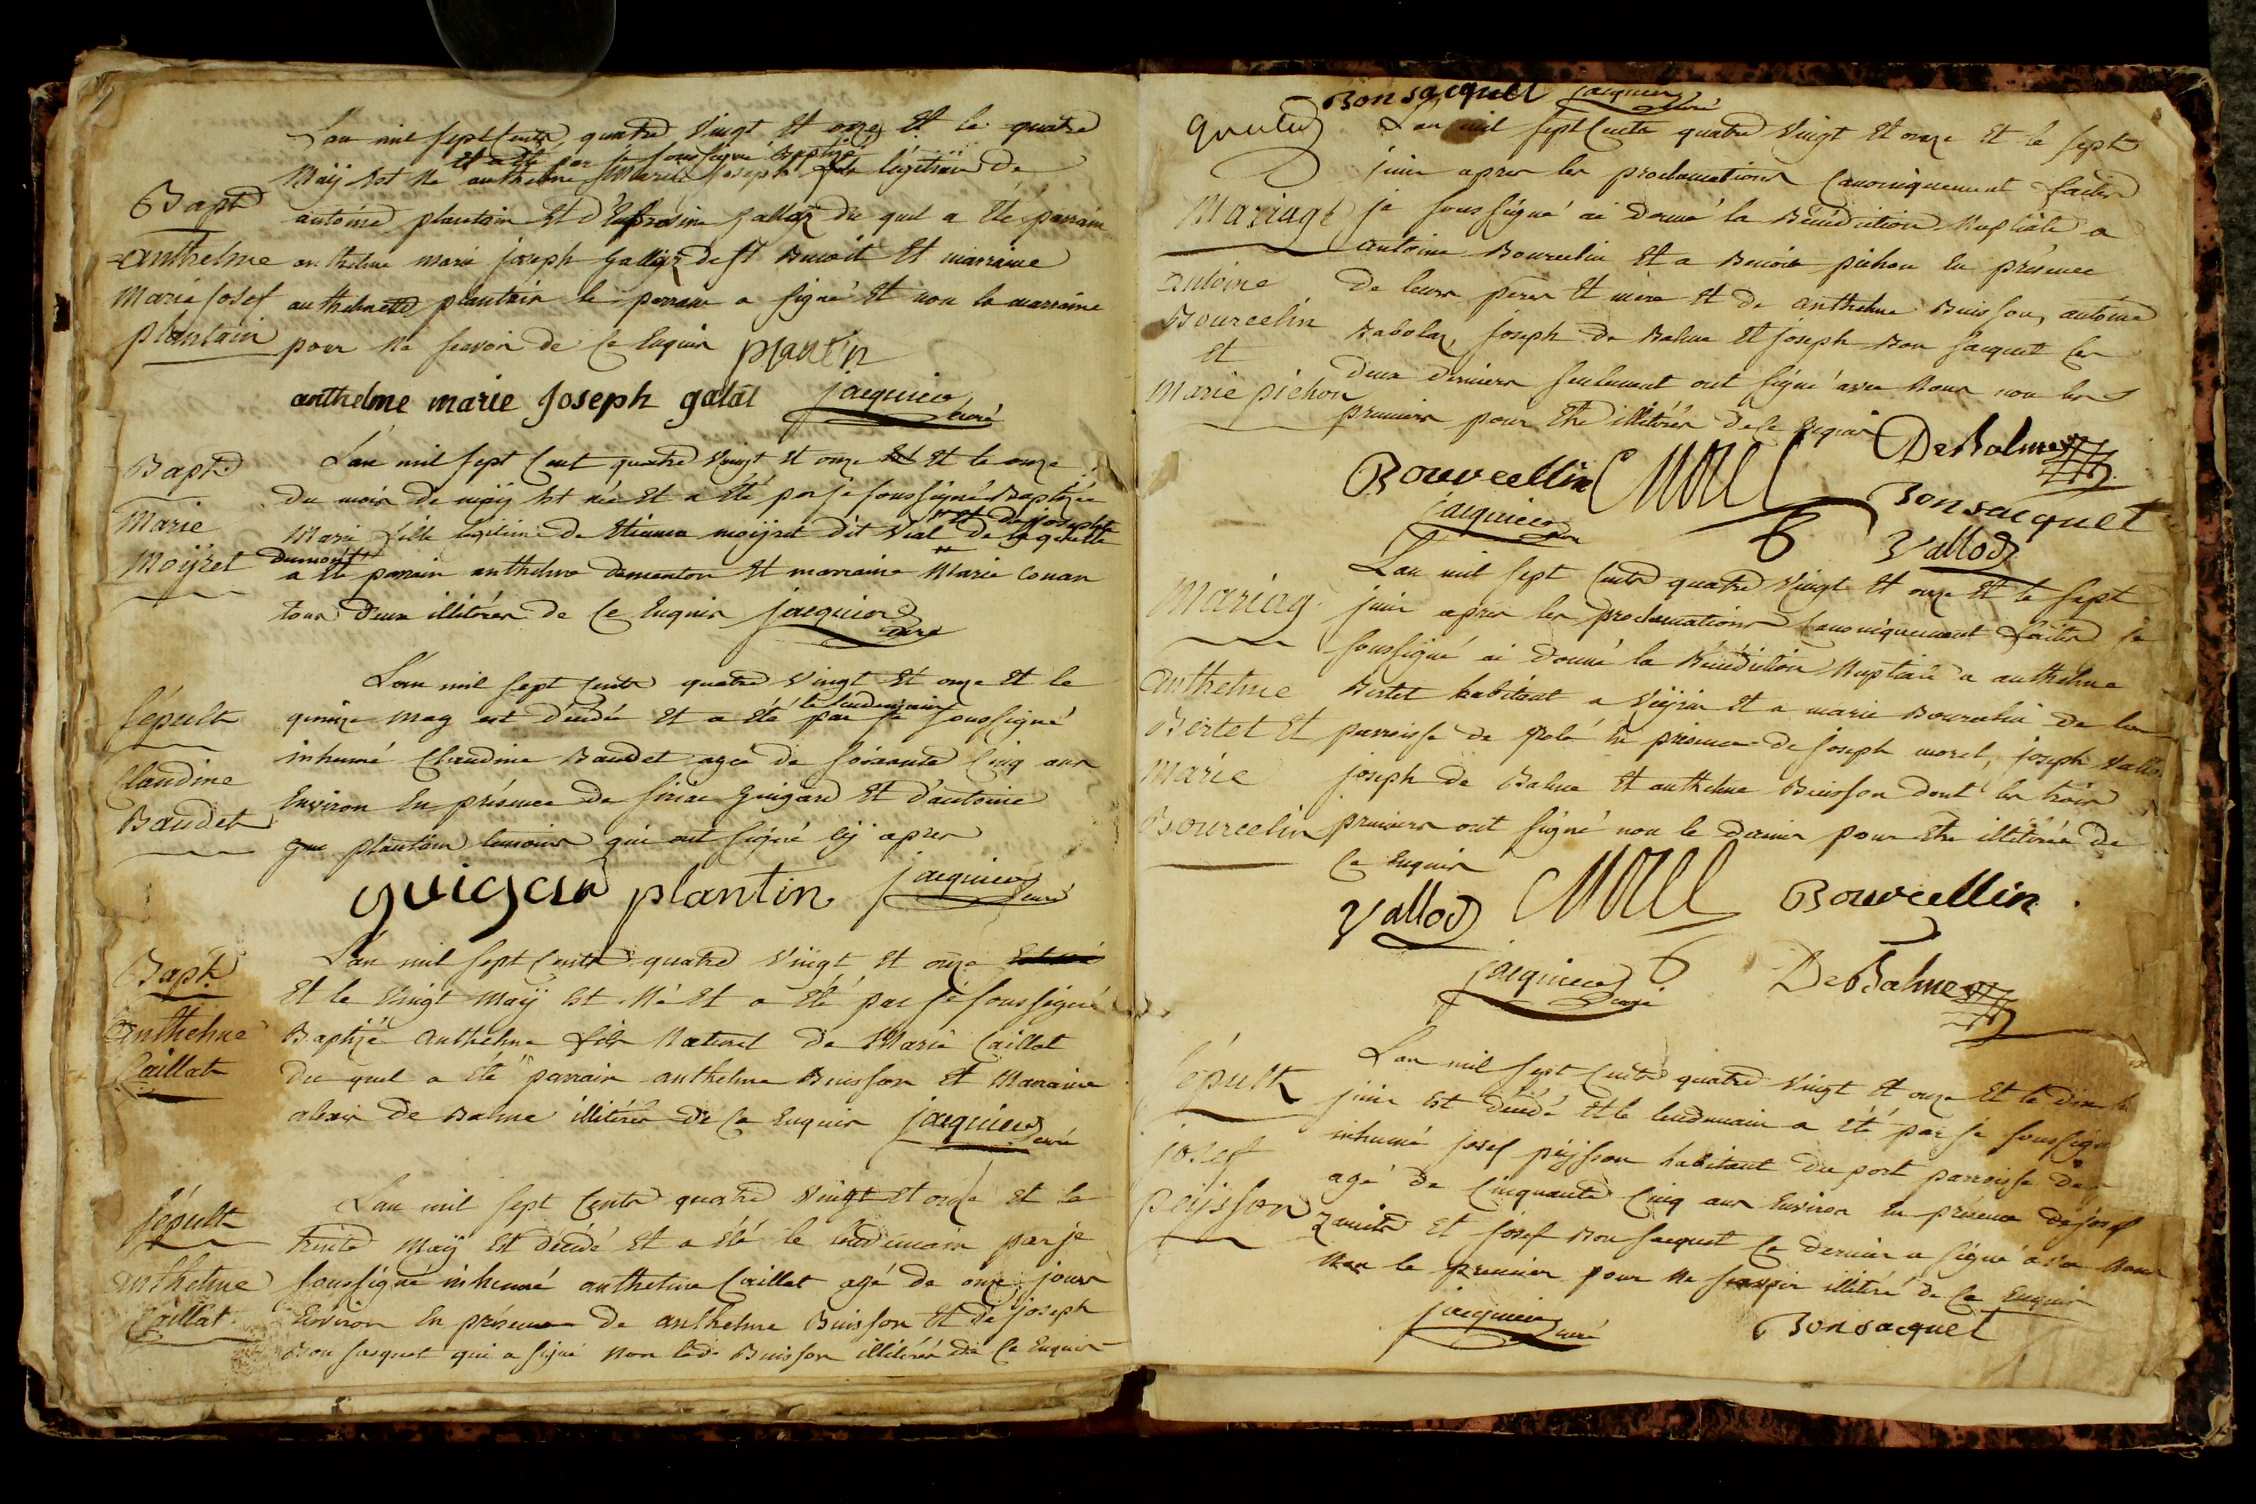 L'an mil sept cents quatre vingt et onze et le quatre
et a été par je soussigné baptizé
Maÿ est né anthelme Marie joseph fils légitime de
Bapt
antoine plantain et d'Eufrosine gallaz du quel a été parrain
anthelme
anthelme marie joseph gallaz de st Benoit et marraine
Marie josef
anthelmete plantain le parrain a signé et non la marraine
plantain
pour ne scavoir de ce Enquis plantin
anthelme marie joseph galat jacquier curé
Bapt
L'an mil sept cent quatre vingt et onze et le onze
du mois de maÿ est née et a été par je soussigné Baptizée
Marie
et de josephte
Marie fille légitime de Etienne moÿret dit vial de laquelle
Moÿret
Dumont
a été parrain anthelme dementon et marraine Marie Conan
tous deux illitérés de ce Enquis jacquier curé
L'an mil sept cents quatre vingt et onze et le
sépult
le lendemain
quinze may est décédée et a été par je soussigné
inhumé Claudine Baudet agée de soixante cinq ans
Claudine
Environ En présence de guigard et d'antoine
Baudet
plantain temoins qui ont signé cÿ apres
guigar plantin jacquier curé
Bapt
L'an mil sept cents quatre vingt et onze
et le vingt maÿ est Né et a été par je soussigné
anthelme
Baptizé anthelme fils Naturel de Marie Caillat
Caillat
du quel a été parrain anthelme Buisson et Marraine
alexis de Balme illitérés de ce Enquis jacquier curé
sépult
L'an mil sept cents quatre vingt et onze et le
trente Maÿ est décédé et a été le lendemain par je
anthelme
soussigné inhumé anthelme Caillat agé de onze jours
Caillat
Environ En présence de anthelme Buisson et de joseph
Bon jacquet qui a signé Non led. Buisson illitéré de ce Enquis
Bonjacquet jacquier curé
L'an mil sept cents quatre vingt et onze et le sept
juin apres les proclamations Canoniquement faites
Mariage
je soussigné ai donné la Bénédiction Nuptiale a
antoine Bourcelin et a Benoite pichon En présence
antoine
de leurs peres et mere et de anthelme Buisson, antoine
Bourcelin
Babolaz, joseph de Balme et joseph Bon jacquet les
et
deux derniers seulement ont signé avec Nous non les
Marie pichon
premiers pour être illitérés de ce Enquis
DeBalme
Bourcellin Morel
Bonjacquet
jacquier curé
Vallod
L'an mil sept cents quatre vingt et onze et le sept
Mariag
juin apres les proclamations Canoniquement faites je
soussigné ai donné la Bénédiction Nuptiale a anthelme
anthelme
Bertet habitant a Veÿrin et a marie Bourcelin de
Bertet et
parroisse de En présence de joseph morel, joseph
Marie
joseph de Balme et anthelme Buisson dont les trois
Bourcelin
premiers ont signé non le dernier pour être illitéré de
ce Enquis
Vallod Morel Bourcellin
jacquier curé DeBalme
L'an mil sept cents quatre vingt et onze et le dix
sépult
juin est décédé et le lendemain a été par je soussigné
inhumé josef peÿsson habitant du port parroisse de
josef
agé de cinquante cinq ans Environ En présence de josef
peÿsson
et josef Bon jacquet ce dernier a signé avec Nous
Non le premier pour illitéré de ce Enquis
jacquier curé
Bonjacquet